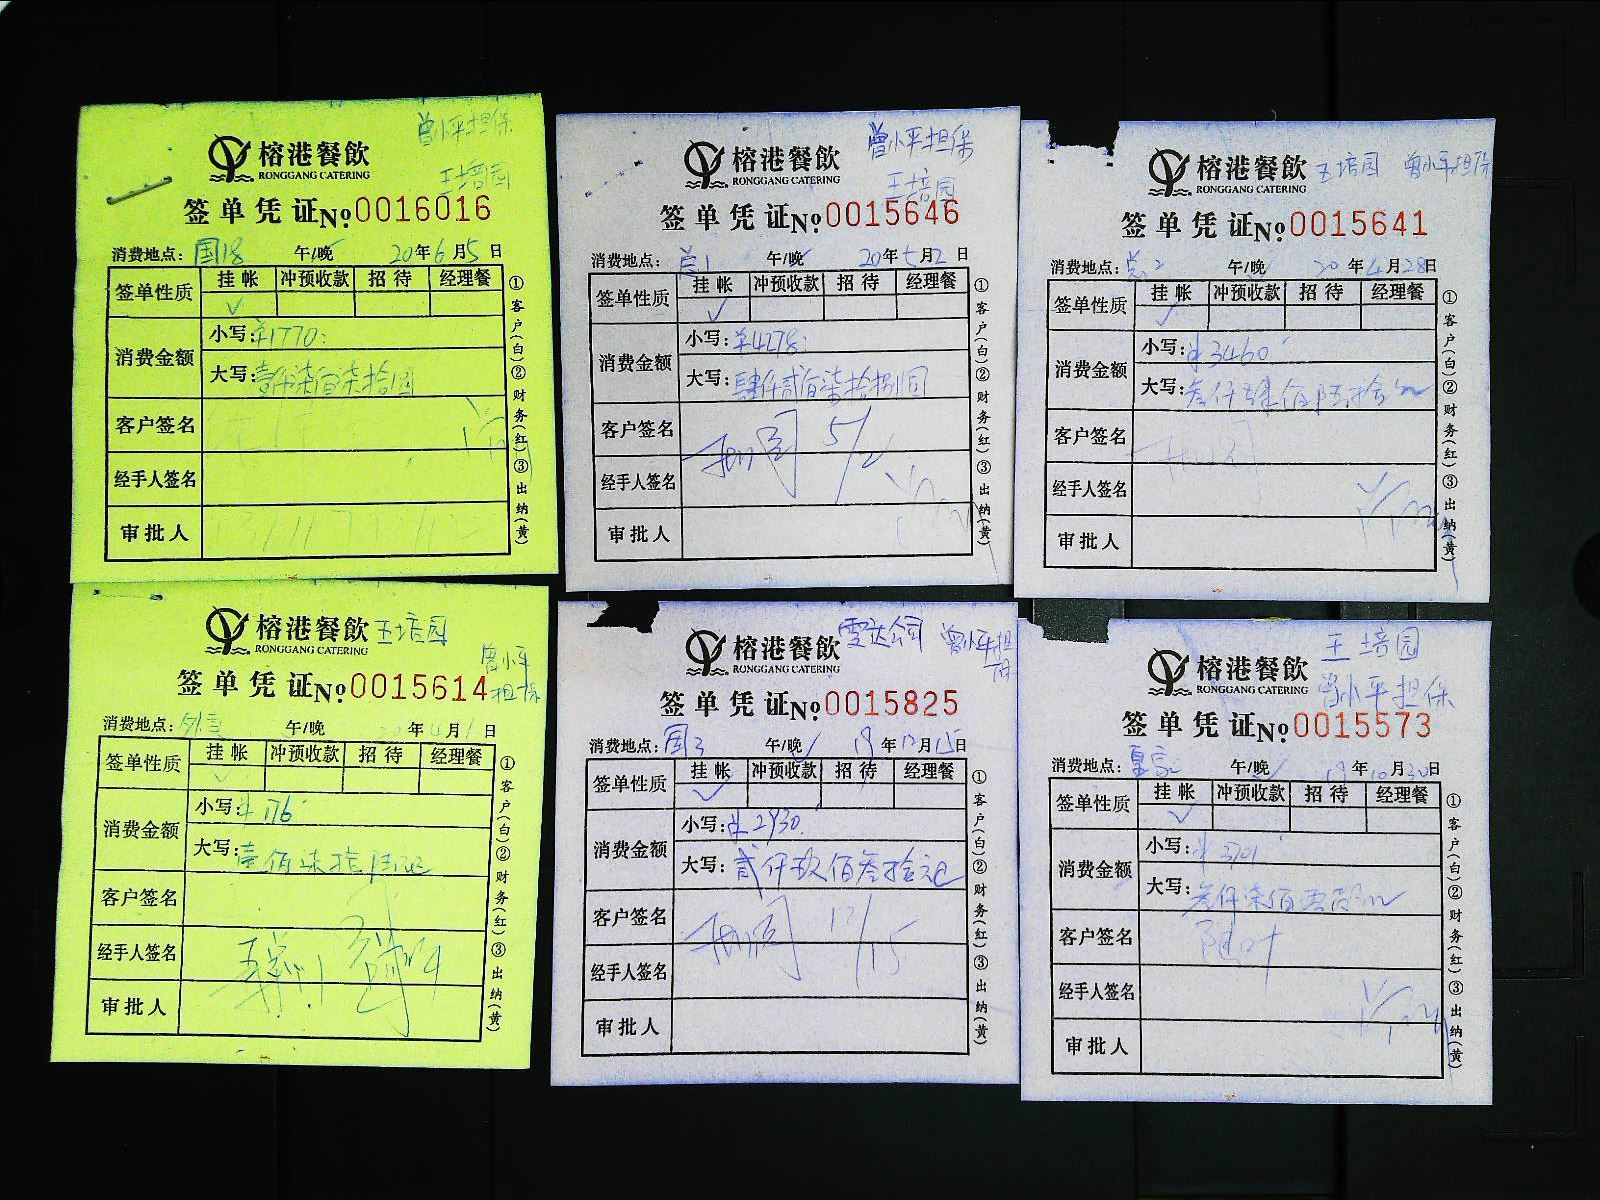 曾小平担保
榕港餐飲
RONGGANG CATERING
王培园
签单凭证№0016016
消费地点：国18 午/晚 20年6月5日
签单性质 挂帐 冲预收款 招待 经理餐
✓
消费金额 小写：¥1770
大写：壹仟柒佰柒拾圆
客户签名
经手人签名
审批人
①客户(白)②财务(红)③出纳(黄)
曾小平担保
榕港餐飲
RONGGANG CATERING
王培园
签单凭证№0015646
消费地点：总1 午/晚 20年5月2日
签单性质 挂帐 冲预收款 招待 经理餐
✓
消费金额 小写：¥4278
大写：肆仟贰佰柒拾捌圆
客户签名 5/2
经手人签名
审批人
①客户(白)②财务(红)③出纳(黄)
榕港餐飲 王培园 曾小平担保
RONGGANG CATERING
签单凭证№0015641
消费地点：总2 午/晚 20年4月28日
签单性质 挂帐 冲预收款 招待 经理餐
✓
消费金额 小写：¥3460
大写：叁仟肆佰陆拾元
客户签名
经手人签名
审批人
①客户(白)②财务(红)③出纳(黄)
榕港餐飲 王培园
RONGGANG CATERING
曾小平担保
签单凭证№0015614
消费地点：外卖 午/晚 20年4月1日
签单性质 挂帐 冲预收款 招待 经理餐
✓
消费金额 小写：¥176
大写：壹佰柒拾陆元
客户签名
经手人签名
审批人
①客户(白)②财务(红)③出纳(黄)
榕港餐飲 雯达公司 曾小平担保
RONGGANG CATERING
签单凭证№0015825
消费地点：国3 午/晚 19年12月15日
签单性质 挂帐 冲预收款 招待 经理餐
✓
消费金额 小写：¥2930
大写：贰仟玖佰叁拾元
客户签名 12/15
经手人签名
审批人
①客户(白)②财务(红)③出纳(黄)
榕港餐飲 王培园
RONGGANG CATERING
曾小平担保
签单凭证№0015573
消费地点： 午/晚 19年10月30日
签单性质 挂帐 冲预收款 招待 经理餐
✓
消费金额 小写：¥3701
大写：叁仟柒佰零壹元
客户签名
经手人签名
审批人
①客户(白)②财务(红)③出纳(黄)